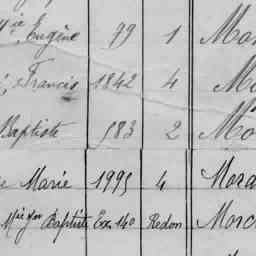 Eugène 79 1 Mo
Francis 1842 4 Mo
Baptiste 583 2 Mo
Marie 1995 4 Mora
Baptiste Ex. 140 Redon Morc